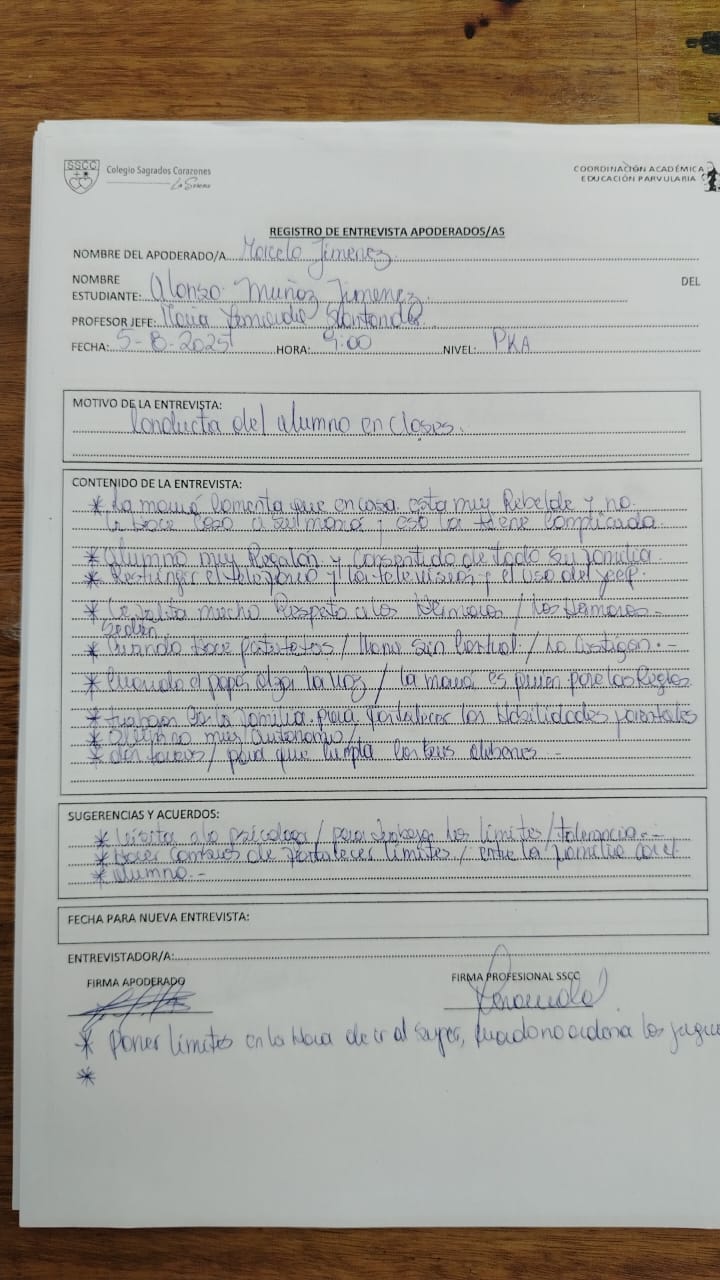 SSCC
Colegio Sagrados Corazones
La Serena
COORDINACIÓN ACADÉMICA
EDUCACIÓN PARVULARIA
REGISTRO DE ENTREVISTA APODERADOS/AS
NOMBRE DEL APODERADO/A Marcela Jimenez.
NOMBRE DEL
ESTUDIANTE: Alonso Muñoz Jimenez.
PROFESOR JEFE: Maria Santander
FECHA: 5-8-2025 HORA: 9:00 NIVEL: PKA
MOTIVO DE LA ENTREVISTA:
Conducta del alumno en clases.
CONTENIDO DE LA ENTREVISTA:
* La mamá comenta que en casa esta muy Rebelde y no
le hace caso a su mamá y eso la tiene complicada.
* Alumno muy Regalón y consentido de toda su familia.
* Restringir el telefono y la television y el uso del jeep.
* Le falta mucho Respeto a los / los Hermanos -
* Cuando Hace pataletas / llora sin control. / Lo castigan. -
* Cuando el papá alza la voz / la mamá es quien pone las Reglas
* trabajar con la familia para fortalecer las Habilidades parentales
* Alumno muy autonomo /
* / para que cumpla con sus deberes -
SUGERENCIAS Y ACUERDOS:
* Visita a la psicologa / para trabajar los límites / tolerancia. -
* Hacer de fortalecer límites / entre la familia con el
* alumno. -
FECHA PARA NUEVA ENTREVISTA:
ENTREVISTADOR/A:
FIRMA APODERADO FIRMA PROFESIONAL SSCC
* Poner límites en la Hora de ir al super, cuando no ordena los
*